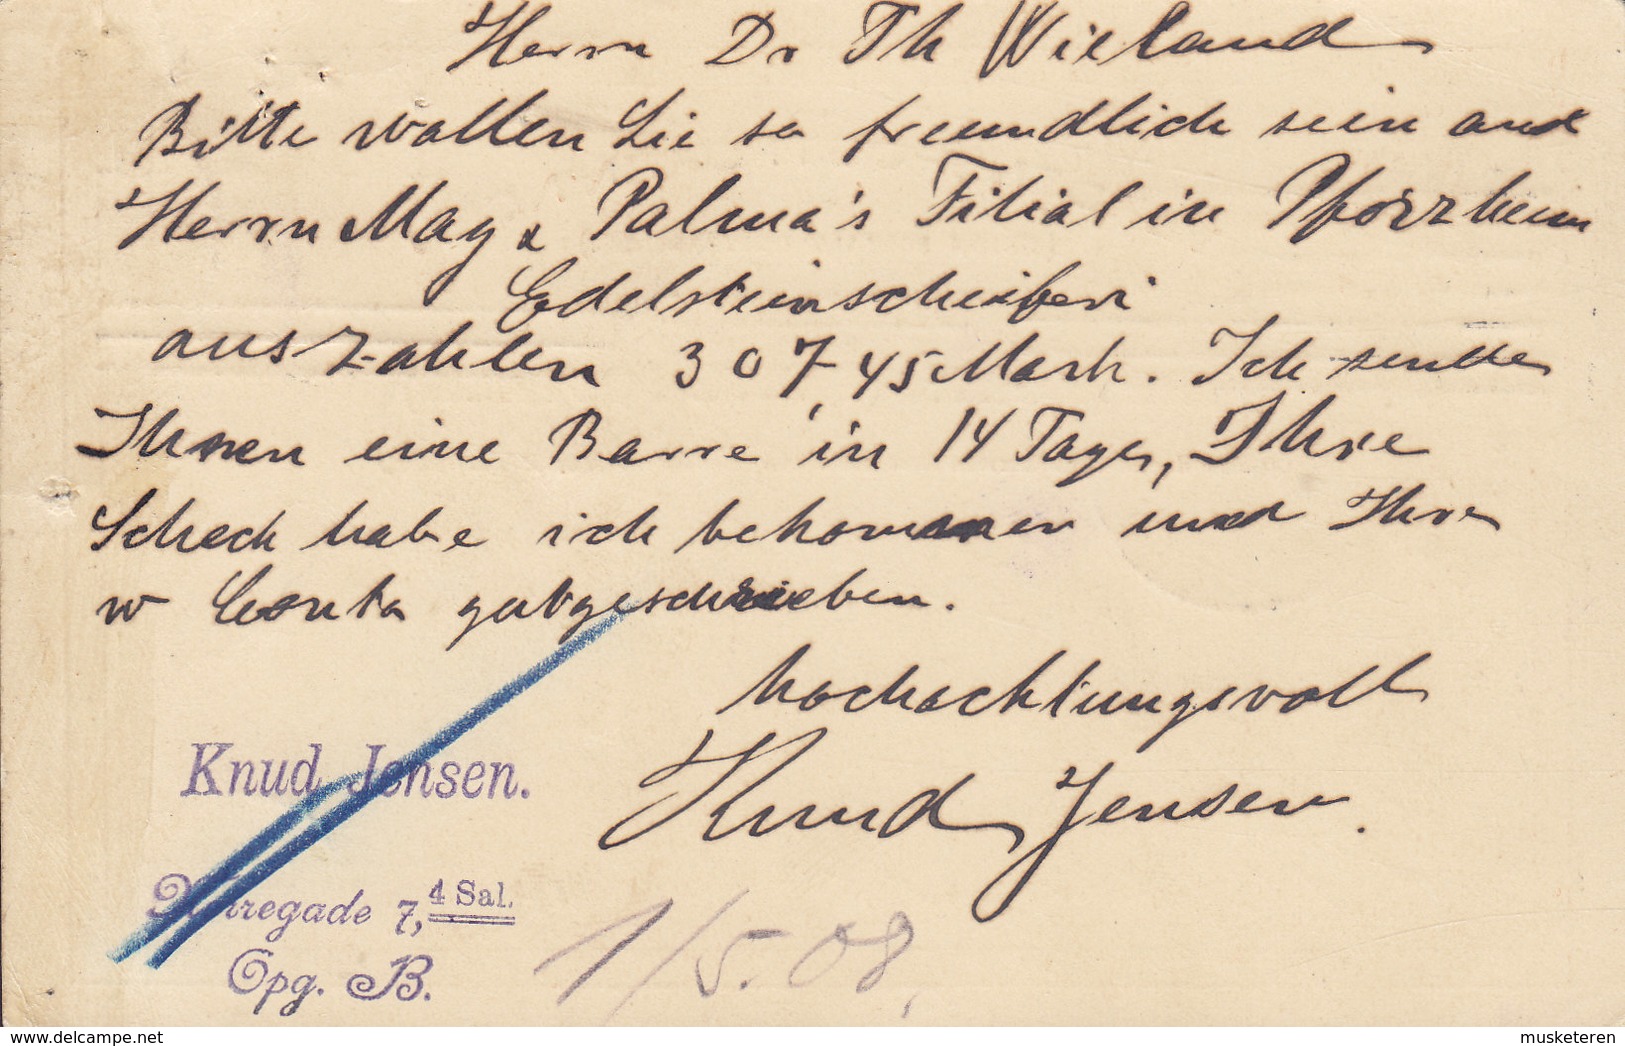 Herrn Dr Th Wieland
Bitte wollen Sie so freundlich sein and
Herrn May & Palma's Filial in Pforzheim
Edelsteinschleiferi
auszahlen 307,45 Mark. Ich sende
Ihnen eine Barre in 14 Tage, Ihre
Scheck habe ich bekommen und Ihre
Conto gutgeschrieben.
hochachtungsvoll
Knud Jensen.
Knud Jensen.
7, 4 Sal.
Opg. B.
1/5.08.
© www.delcampe.net
musketeren